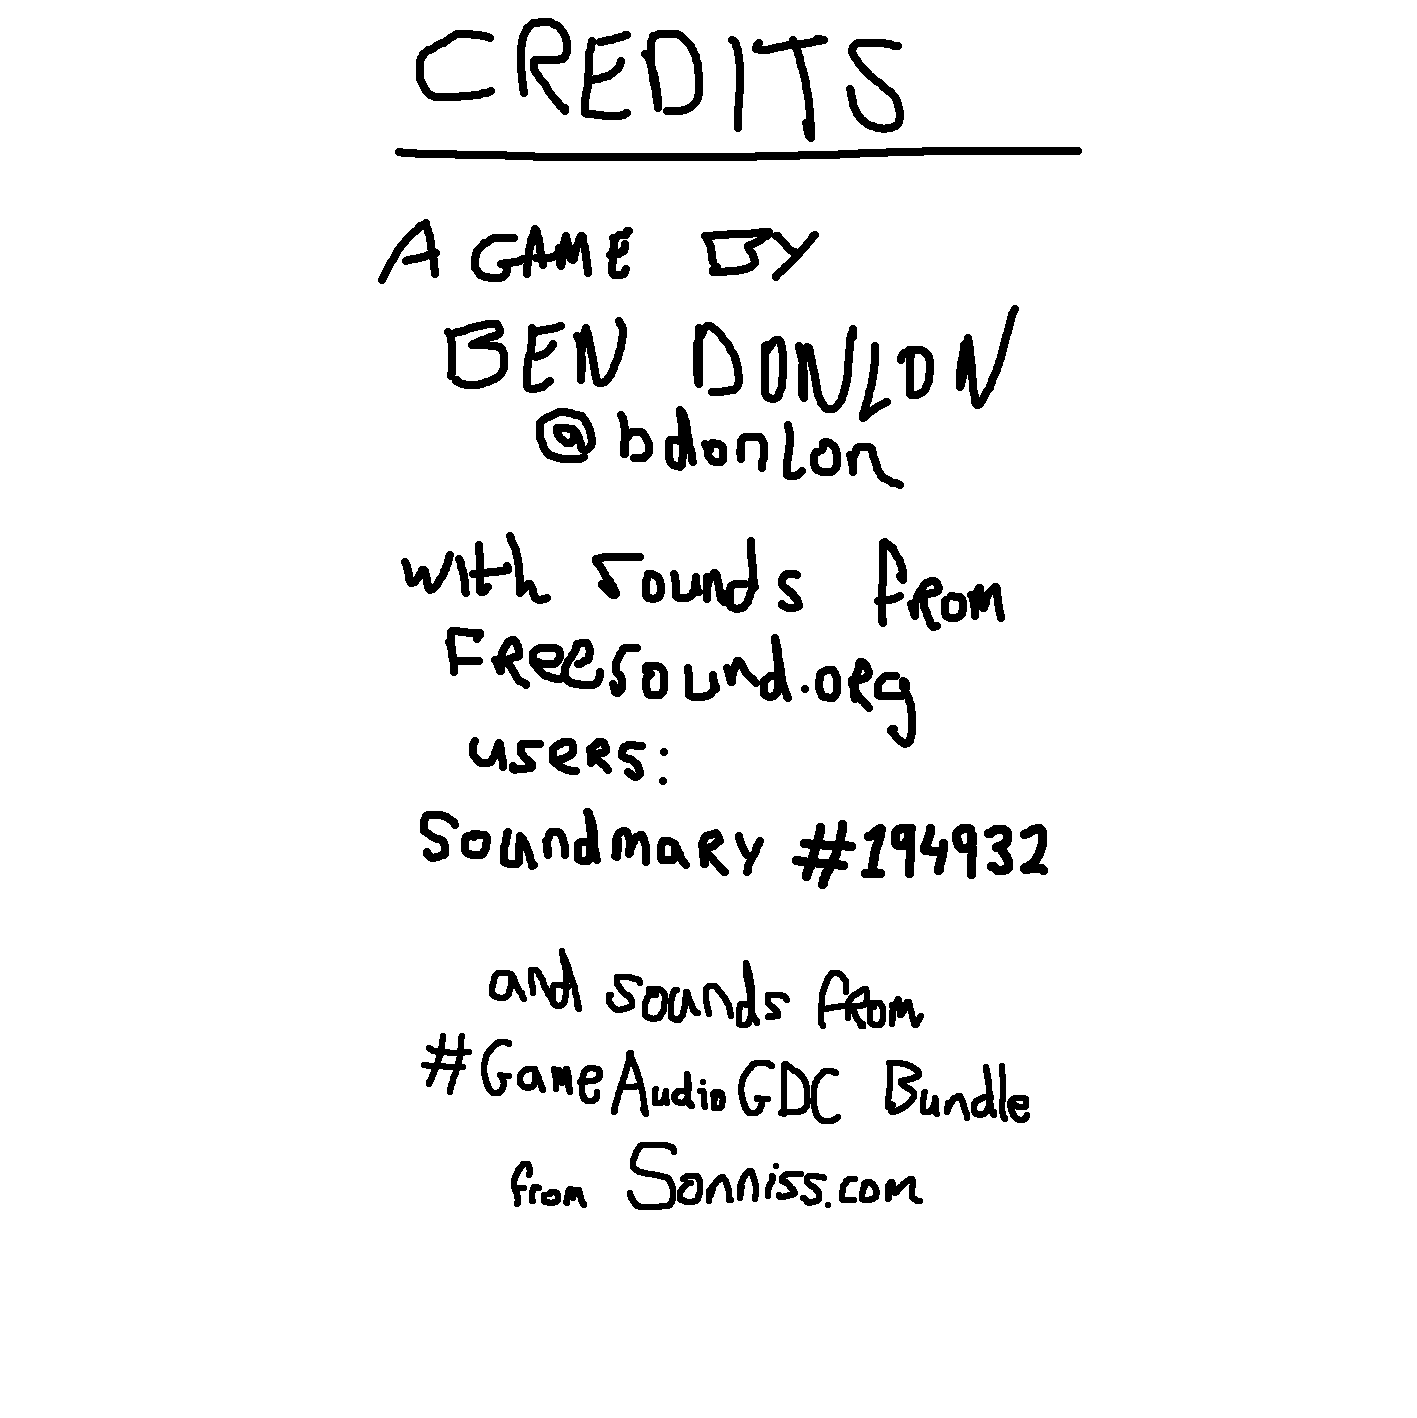 CREDITS
A GAME BY
BEN DONLON
@bdonlon
with sounds from
FReesound.oRg
useRs:
SoundmaRy #194932
and sounds fRom
#GameAudioGDC Bundle
from Sonniss.com